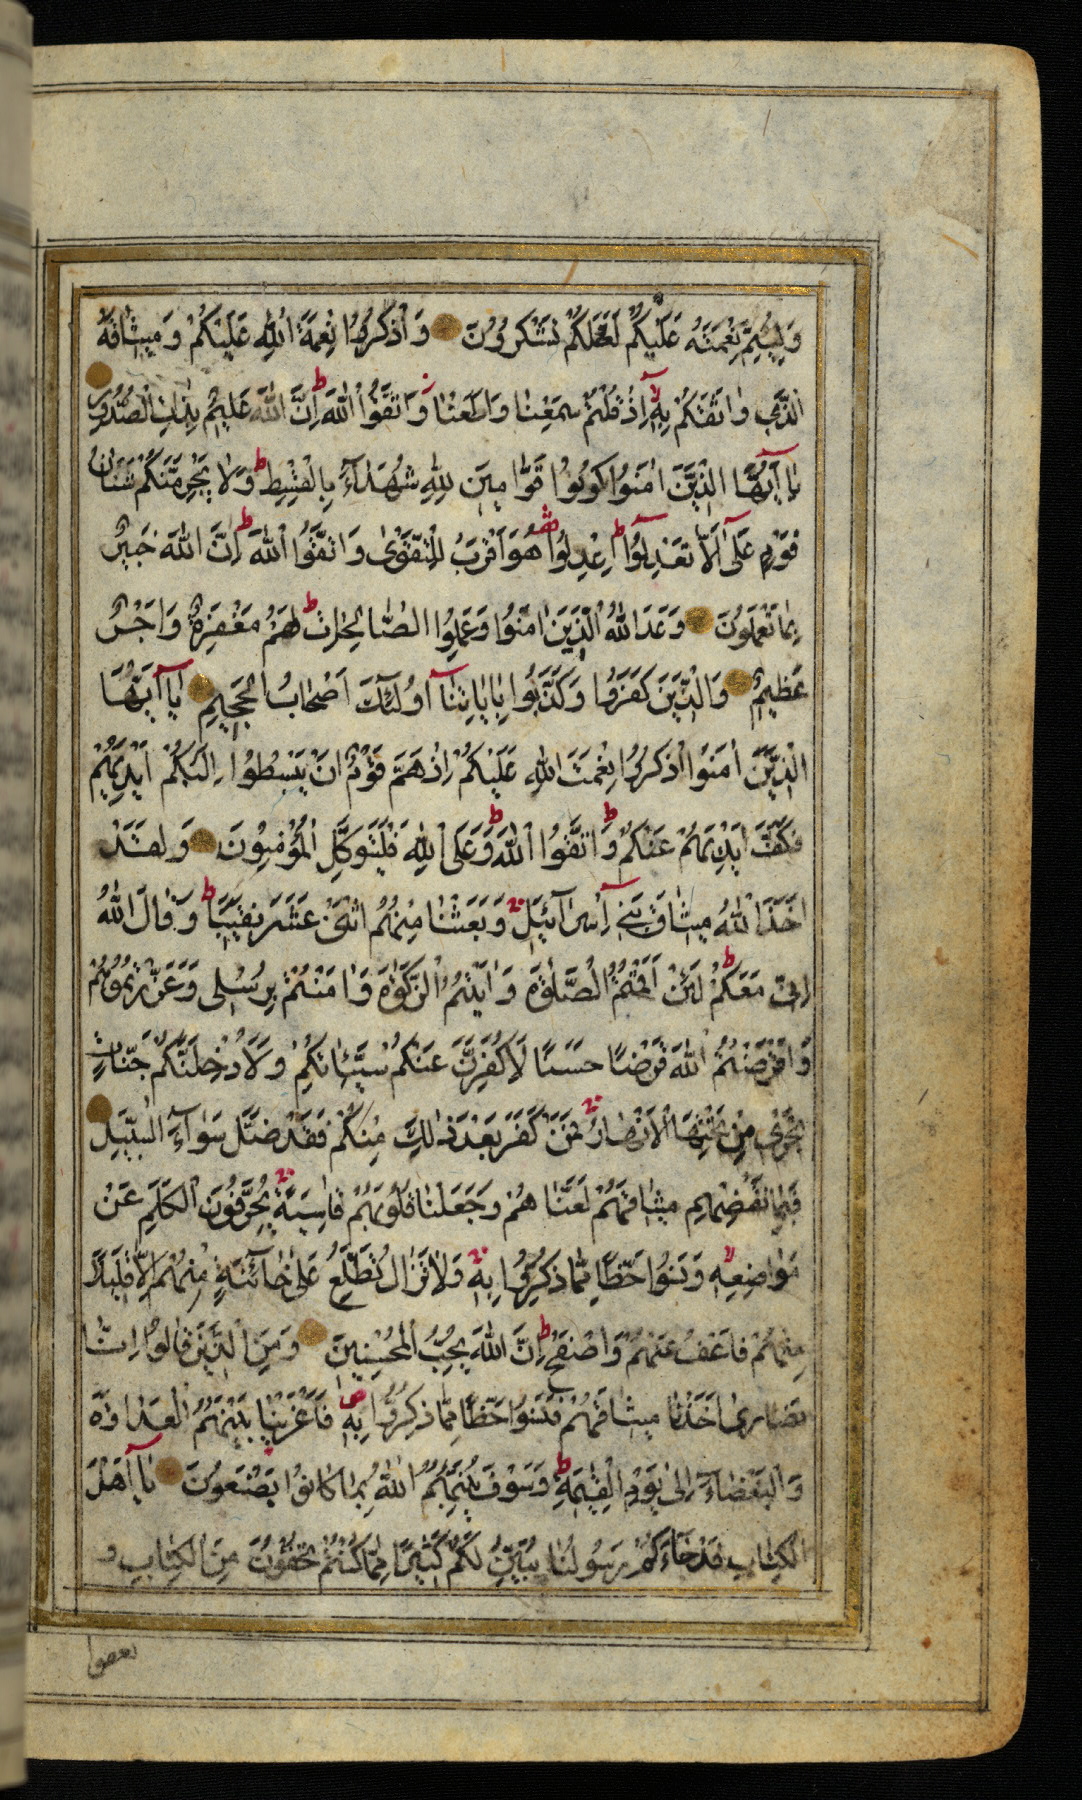 وَلِيُتِمَّ نِعْمَتَهُ عَلَيْكُمْ لَعَلَّكُمْ تَشْكُرُونَ وَاذْكُرُوا نِعْمَةَ اللّٰهِ عَلَيْكُمْ وَمِيثَاقَهُ
الَّذِي وَاثَقَكُمْ بِهِ إِذْ قُلْتُمْ سَمِعْنَا وَأَطَعْنَا وَاتَّقُوا اللّٰهَ إِنَّ اللّٰهَ عَلِيمٌ بِذَاتِ الصُّدُورِ
يَا أَيُّهَا الَّذِينَ آمَنُوا كُونُوا قَوَّامِينَ لِلّٰهِ شُهَدَاءَ بِالْقِسْطِ وَلَا يَجْرِمَنَّكُمْ شَنَآنُ
قَوْمٍ عَلَى أَلَّا تَعْدِلُوا اِعْدِلُوا هُوَ أَقْرَبُ لِلتَّقْوَىٰ وَاتَّقُوا اللّٰهَ إِنَّ اللّٰهَ خَبِيرٌ
بِمَا تَعْمَلُونَ وَعَدَ اللّٰهُ الَّذِينَ آمَنُوا وَعَمِلُوا الصَّالِحَاتِ لَهُمْ مَغْفِرَةٌ وَأَجْرٌ
عَظِيمٌ وَالَّذِينَ كَفَرُوا وَكَذَّبُوا بِآيَاتِنَا أُولٰئِكَ أَصْحَابُ الْجَحِيمِ يَا أَيُّهَا
الَّذِينَ آمَنُوا اذْكُرُوا نِعْمَتَ اللّٰهِ عَلَيْكُمْ إِذْ هَمَّ قَوْمٌ أَنْ يَبْسُطُوا إِلَيْكُمْ أَيْدِيَهُمْ
فَكَفَّ أَيْدِيَهُمْ عَنْكُمْ وَاتَّقُوا اللّٰهَ وَعَلَى اللّٰهِ فَلْيَتَوَكَّلِ الْمُؤْمِنُونَ وَلَقَدْ
أَخَذَ اللّٰهُ مِيثَاقَ بَنِي إِسْرَائِيلَ وَبَعَثْنَا مِنْهُمُ اثْنَيْ عَشَرَ نَقِيبًا وَقَالَ اللّٰهُ
إِنِّي مَعَكُمْ لَئِنْ أَقَمْتُمُ الصَّلٰوةَ وَآتَيْتُمُ الزَّكٰوةَ وَآمَنْتُمْ بِرُسُلِي وَعَزَّرْتُمُوهُمْ
وَأَقْرَضْتُمُ اللّٰهَ قَرْضًا حَسَنًا لَأُكَفِّرَنَّ عَنْكُمْ سَيِّئَاتِكُمْ وَلَأُدْخِلَنَّكُمْ جَنَّاتٍ
تَجْرِي مِنْ تَحْتِهَا الْأَنْهَارُ فَمَنْ كَفَرَ بَعْدَ ذٰلِكَ مِنْكُمْ فَقَدْ ضَلَّ سَوَاءَ السَّبِيلِ
فَبِمَا نَقْضِهِمْ مِيثَاقَهُمْ لَعَنَّاهُمْ وَجَعَلْنَا قُلُوبَهُمْ قَاسِيَةً يُحَرِّفُونَ الْكَلِمَ عَنْ
مَوَاضِعِهِ وَنَسُوا حَظًّا مِمَّا ذُكِّرُوا بِهِ وَلَا تَزَالُ تَطَّلِعُ عَلَىٰ خَائِنَةٍ مِنْهُمْ إِلَّا قَلِيلًا
مِنْهُمْ فَاعْفُ عَنْهُمْ وَاصْفَحْ إِنَّ اللّٰهَ يُحِبُّ الْمُحْسِنِينَ وَمِنَ الَّذِينَ قَالُوا إِنَّا
نَصَارَىٰ أَخَذْنَا مِيثَاقَهُمْ فَنَسُوا حَظًّا مِمَّا ذُكِّرُوا بِهِ فَأَغْرَيْنَا بَيْنَهُمُ الْعَدَاوَةَ
وَالْبَغْضَاءَ إِلَىٰ يَوْمِ الْقِيٰمَةِ وَسَوْفَ يُنَبِّئُهُمُ اللّٰهُ بِمَا كَانُوا يَصْنَعُونَ يَا أَهْلَ
الْكِتَابِ قَدْ جَاءَكُمْ رَسُولُنَا يُبَيِّنُ لَكُمْ كَثِيرًا مِمَّا كُنْتُمْ تُخْفُونَ مِنَ الْكِتَابِ وَ
يعفوا